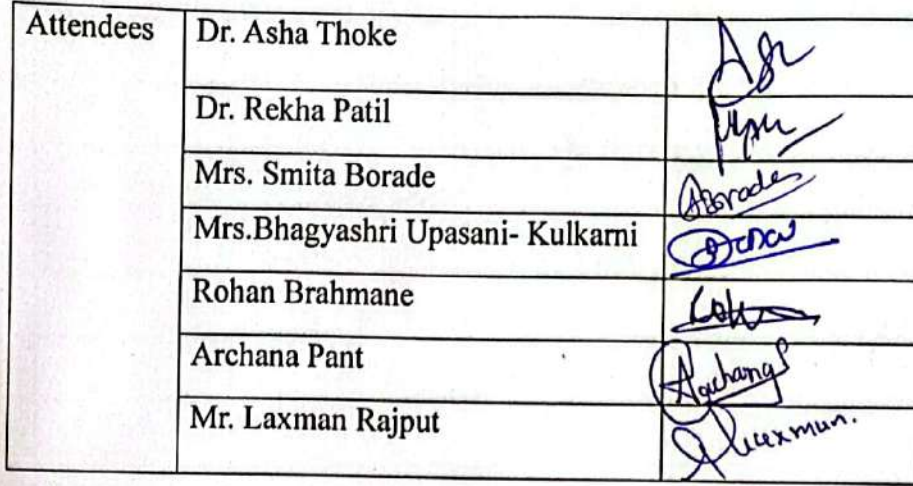 Attendees Dr. Asha Thoke
Dr. Rekha Patil
Mrs. Smita Borade SBorade
Mrs.Bhagyashri Upasani- Kulkarni
Rohan Brahmane
Archana Pant ArchanaP
Mr. Laxman Rajput Laxman.